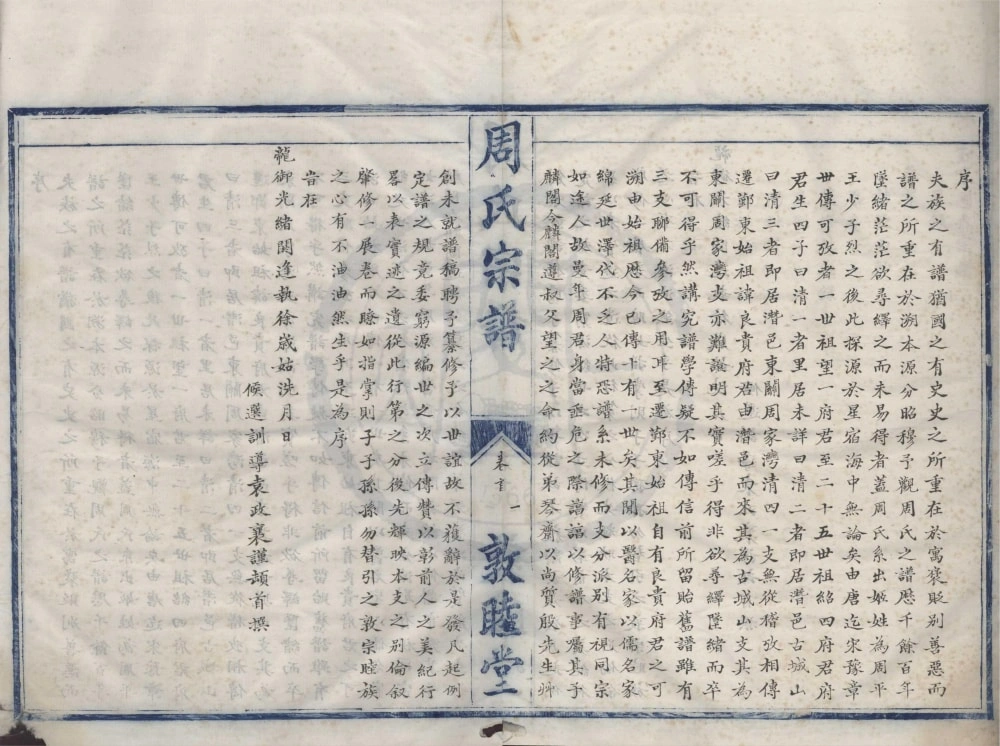 序
夫族之有譜猶國之有史史之所重在於寓褒貶别善惡而
譜之所重在於溯本源分昭穆予觀周氏之譜歴千餘百年
墜緒茫茫欲尋繹之而未易得者蓋周氏系出姬姓為周平
王少子烈之後此探源於星宿海中無論矣由唐迄宋豫章
世傳可攷者一世祖望一府君至二十五世祖紹四府君府
君生四子曰清一者里居未詳曰清二者即居潛邑古城山
曰清三者即居潛邑東關周家灣清四一支無從稽攷相傳
遷鄞東始祖諱良貴府君由潛邑而來其為古城山支其為
東關周家灣支亦難說明其實嗟乎得非欲尋繹墜緒而卒
不可得乎然講究譜學傳疑不如傳信前所留貽舊譜雖有
三支聊備參攷之用耳至遷鄞東始祖自有良貴府君之可
溯由始祖歷今已傳十有一世矣其間以醫名家以儒名家
綿延世澤代不乏人特恐譜系未修而支分派别有視同宗
如途人故曼年周君身當垂危之際諄諄以修譜事囑其子
麟閣今麟閣遵叔父望之之命約從弟琴齋以尚質殷先生艸
周氏宗譜
卷首
一
敦睦堂
創未就譜稿聘予纂修予以世誼故不獲辭於是發凡起例
定譜之規竟委窮源編世之次立傳贊以彰前人之美紀行
畧以表實迹之遺從此行第之分後先輝映本支之别倫叙
肇修一展卷而瞭如指掌則子子孫孫勿替引之敦宗睦族
之心有不油油然生乎是為序
旹在
龍御光緒閼逢執徐歲姑洗月日
候選訓導袁政襄謹頓首撰